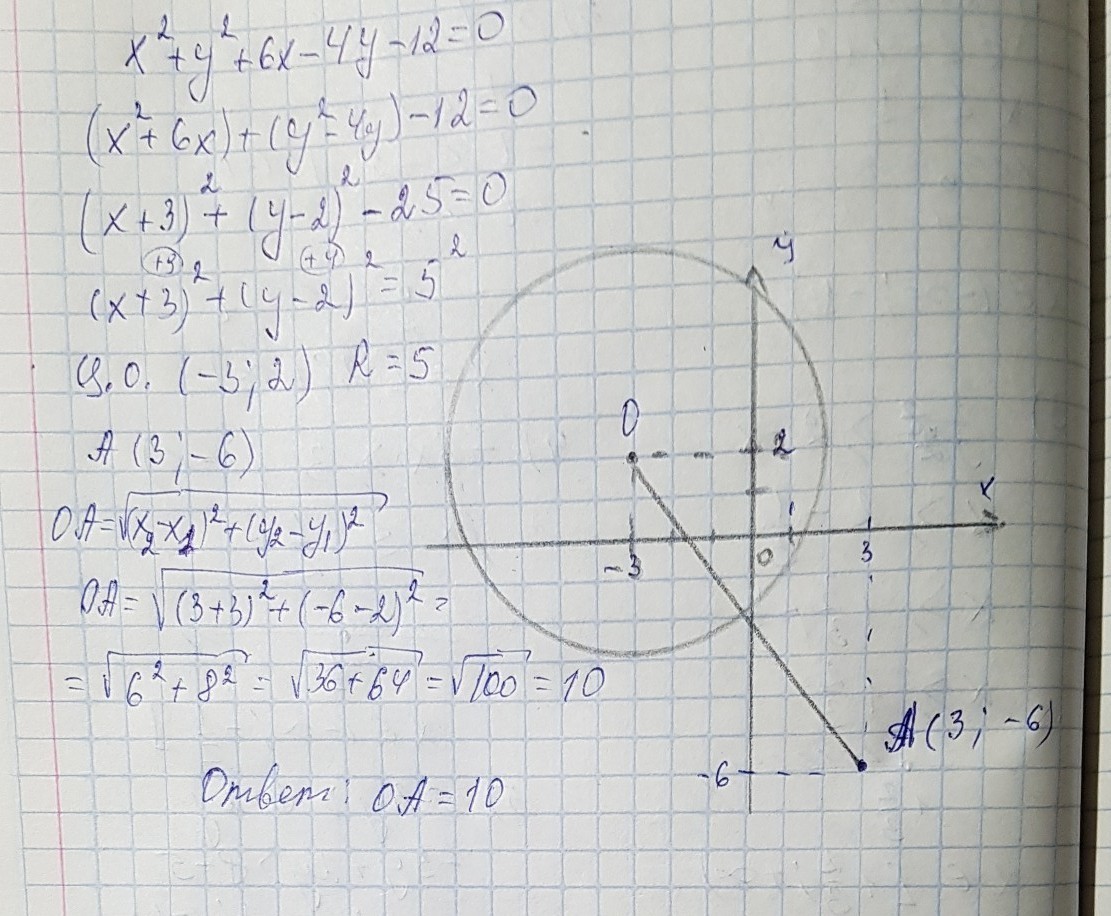 x²+y²+6x-4y-12=0
(x²+6x)+(y²-4y)-12=0
(x+3)²+(y-2)²-25=0
+9 +4
(x+3)²+(y-2)²=5²
Ц.О. (-3; 2) R=5
A (3; -6)
OA=√(x₂-x₁)²+(y₂-y₁)²
OA=√(3+3)²+(-6-2)² =
=√6²+8² = √36+64 = √100 = 10
Ответ: OA=10
y
O
2
x
-3
0
3
A(3; -6)
-6